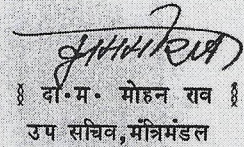 दो. म. मोहन राव
उप सचिव, मंत्रिमंडल